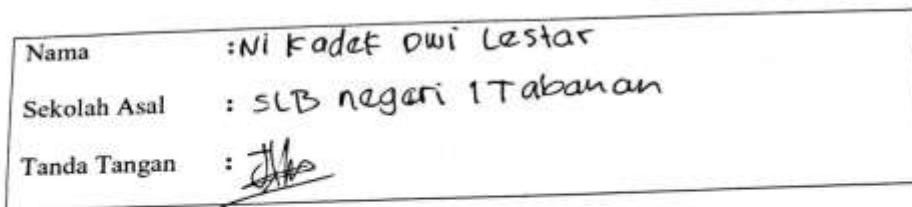 Nama : Ni Kadek Dwi Lestar
Sekolah Asal : SLB negeri 1 Tabanan
Tanda Tangan :